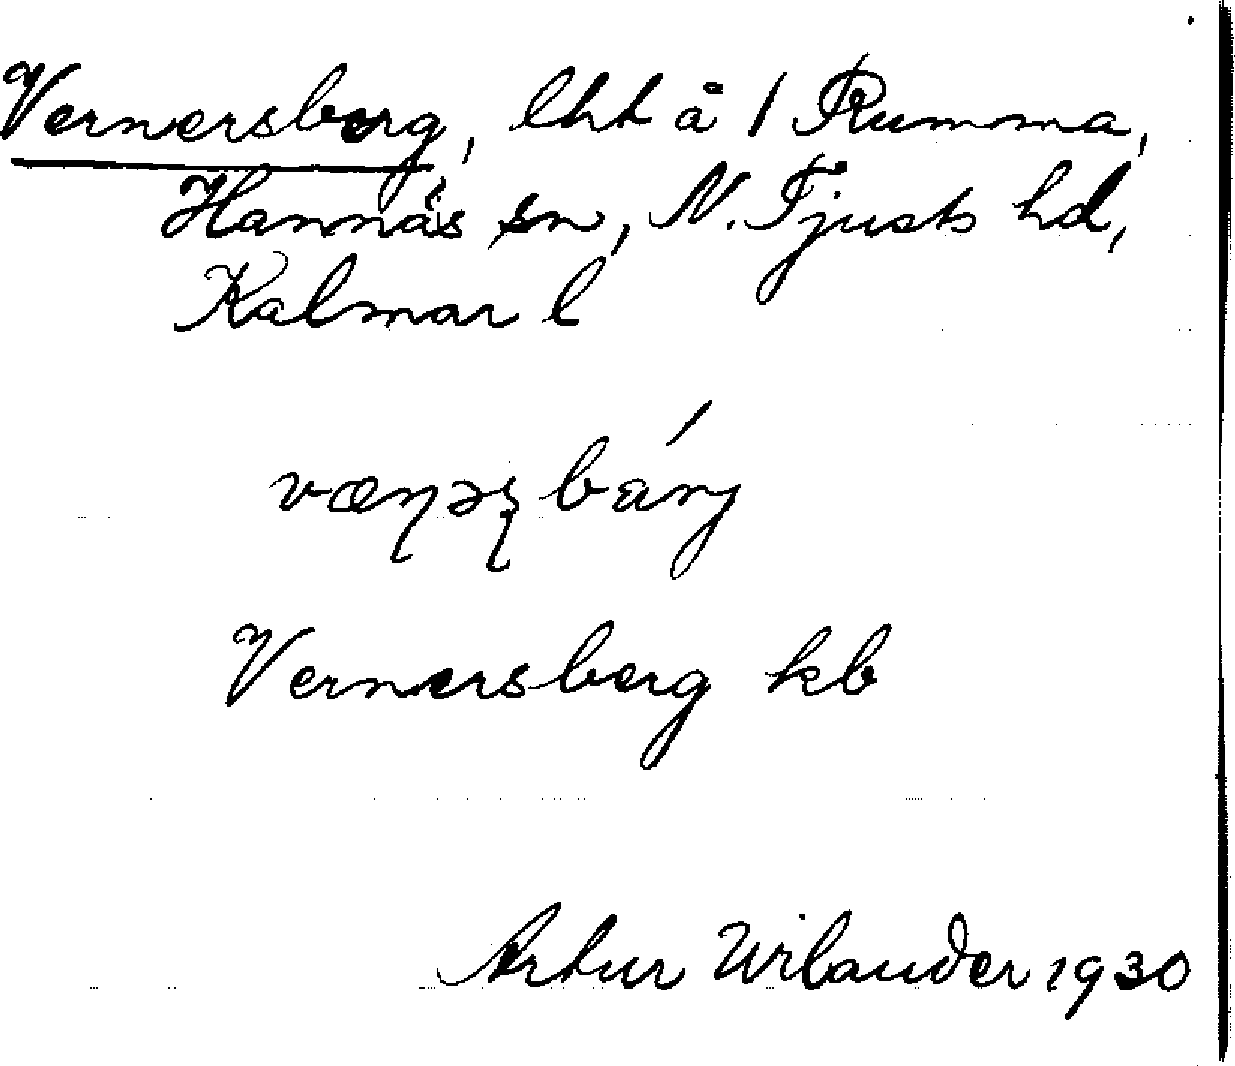 Vernersberg, lht å 1 Rumma,
Hannäs sn, N. Tjusts hd,
Kalmar l
væɳəʂbárj
Vernersberg kb
Artur Wilander 1930